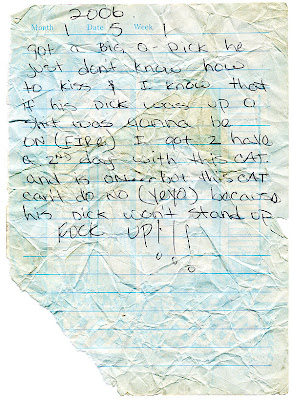 2006
Month 1 Day 5 Week 1
got a big o- Dick he
just dont know how
to kiss & I know that
if his Dick was up O
shit was gonna be
ON (FIRE) I got 2 have
a 2nd day with this CAT
and is on but this CAT
can't do no (yeye) because
his Dick won't stand up
ROCK UP!!!